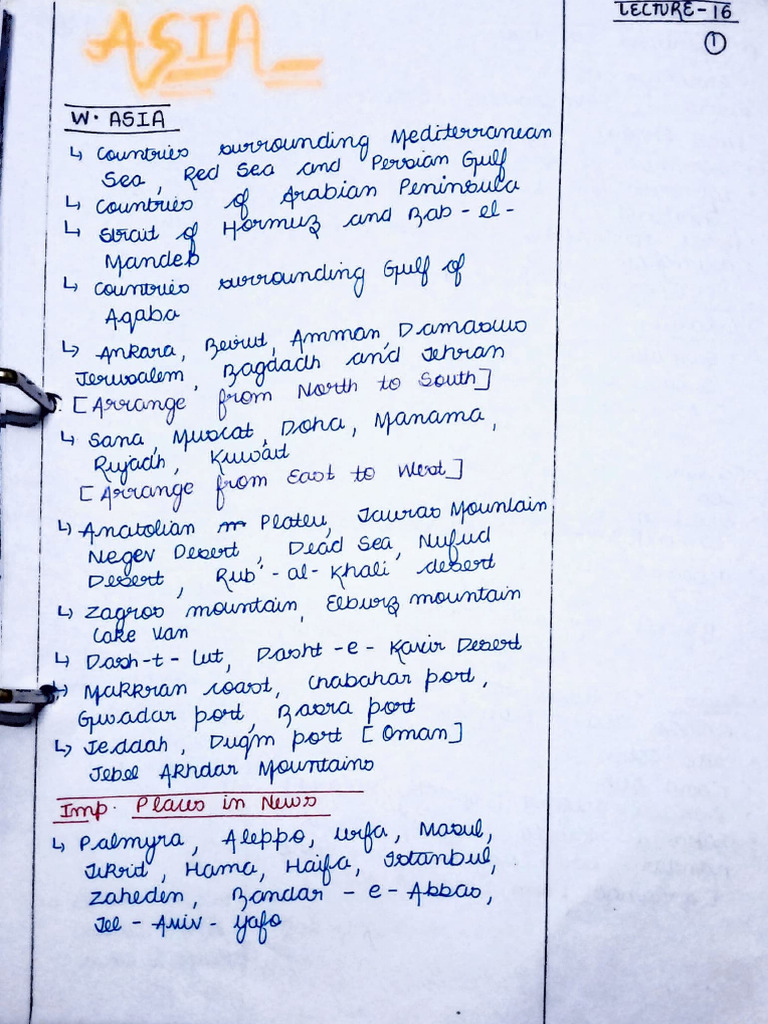 LECTURE-16
1
ASIA
W. ASIA
↳ Countries surrounding Mediterranean
Sea, Red Sea and Persian Gulf
↳ Countries of Arabian Peninsula
↳ Strait of Hormuz and Bab-el-
Mandeb
↳ Countries surrounding Gulf of
Aqaba
↳ Ankara, Beirut, Amman, Damascus
Jerusalem, Bagdadh and Tehran
[Arrange from North to South]
↳ Sana, Muscat, Doha, Manama,
Riyadh, Kuwait
[Arrange from East to West]
↳ Anatolian Plateu, Tauras Mountain
Negev Desert, Dead Sea, Nufud
Desert, Rub'-al-Khali desert
↳ Zagros mountain, Elburz mountain
Lake Van
↳ Dash-t-Lut, Dasht-e-Kavir Desert
↳ Makkran coast, Chabahar port,
Gwadar port, Basra port
↳ Jeddah, Duqm port [Oman]
Jebel Akhdar Mountains
Imp. Places in News
↳ Palmyra, Aleppo, Urfa, Mosul,
Tikrid, Hama, Haifa, Istanbul,
Zaheden, Bandar-e-Abbas,
Tel-Aviv-Yafo